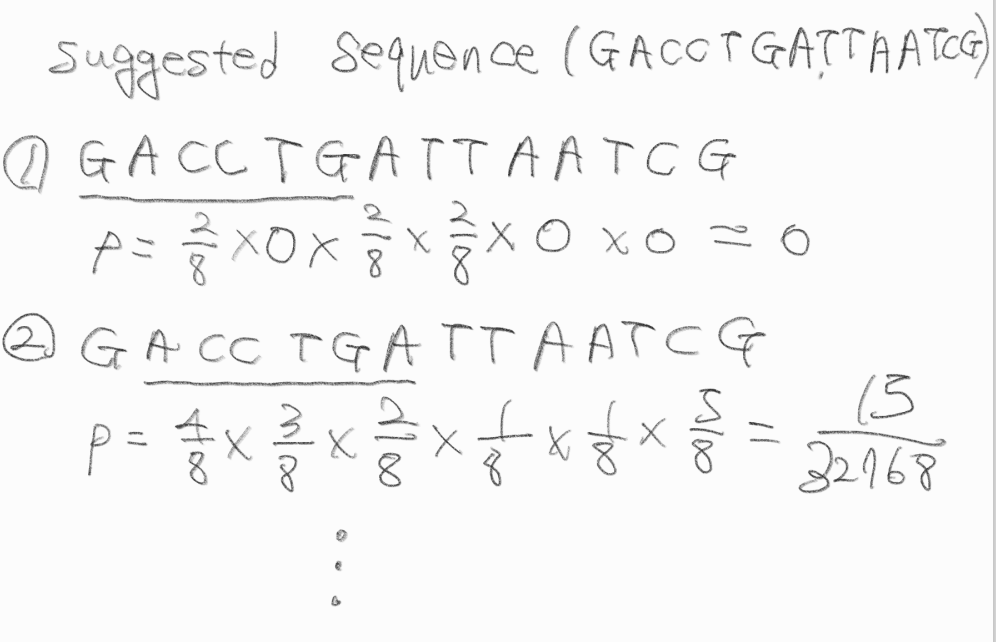 suggested sequence (GACCTGATTAATCG)
① GACCTGATTAATCG
P = 2/8 × 0 × 2/8 × 2/8 × 0 × 0 = 0
② GACCTGATTAATCG
P = 4/8 × 3/8 × 2/8 × 1/8 × 1/8 × 5/8 = 15/32768